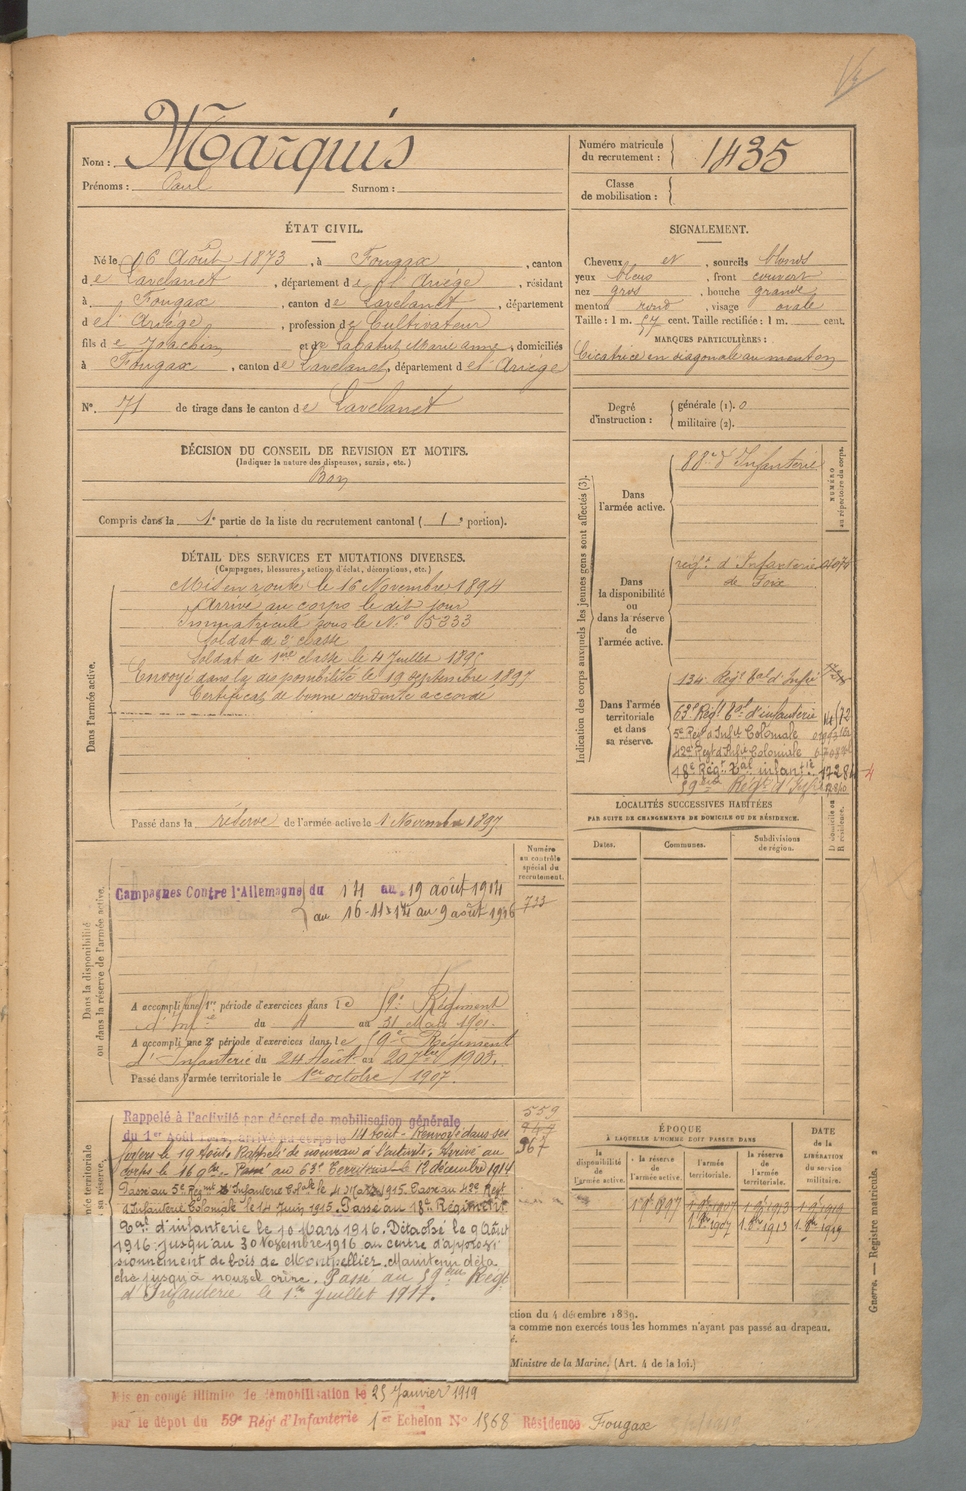 Nom : Marquis
Prénoms : Paul Surnom :
Numéro matricule du recrutement : 1435
Classe de mobilisation :
ÉTAT CIVIL.
Né le 16 Août 1873, à Fougax, canton
de Lavelanet, département de l'Ariège, résidant
à Fougax, canton de Lavelanet, département
de l'Ariège, profession de Cultivateur
fils de Joachim et de Marie Anne, domiciliés
à Fougax, canton de Lavelanet, département de l'Ariège
N°. 71 de tirage dans le canton de Lavelanet
SIGNALEMENT.
Cheveux et, sourcils blonds
yeux bleus, front couvert
nez gros, bouche grande
menton rond, visage ovale
Taille : 1 m. 57 cent. Taille rectifiée : 1 m. cent.
MARQUES PARTICULIÈRES :
Cicatrice en diagonale au menton
Degré d'instruction : générale (1). 0
militaire (2).
DÉCISION DU CONSEIL DE REVISION ET MOTIFS.
(Indiquer la nature des dispenses, sursis, etc.)
Bon
Compris dans la 1e partie de la liste du recrutement cantonal (1e portion).
DÉTAIL DES SERVICES ET MUTATIONS DIVERSES.
(Campagnes, blessures, actions d'éclat, décorations, etc.)
Dans l'armée active.
Mis en route le 16 Novembre 1894
Arrivé au corps le dit jour
Immatriculé sous le N° 05333
Soldat de 2e classe
Soldat de 1ère classe le 4 Juillet 1895
Envoyé dans la disponibilité le 19 septembre 1897
Certificat de bonne conduite accordé
Passé dans la réserve de l'armée active le 1 Novembre 1897
Indication des corps auxquels les jeunes gens sont affectés (3).
NUMÉRO au répertoire du corps.
Dans l'armée active.
88e d'Infanterie
Dans la disponibilité ou dans la réserve de l'armée active.
régt. d'Infanterie
de Foix
Dans l'armée territoriale et dans sa réserve.
134e Régt tal d'Infie
63e Régt tal d'infanterie
5e Régt d'Infie Coloniale
42e Régt d'Infie Coloniale
18e Régt tal infantie 17284
59ème Régt d'Infie
LOCALITÉS SUCCESSIVES HABITÉES
PAR SUITE DE CHANGEMENTS DE DOMICILE OU DE RÉSIDENCE.
Dates. Communes. Subdivisions de région. D. domicile ou R. résidence.
Dans la disponibilité ou dans la réserve de l'armée active.
Numéro au contrôle spécial du recrutement.
733
Campagnes Contre l'Allemagne du 14 au 19 août 1914
au 9 août 1916
A accompli une 1re période d'exercices dans le Régiment
d'Infie du 4 au 31 Mars 1901.
A accompli une 2e période d'exercices dans le Régiment
d'Infanterie du 24 Août au 20 7bre 1903.
Passé dans l'armée territoriale le 1er octobre 1907.
559
947
967
Rappelé à l'activité par décret de mobilisation générale
du 1er Août arrivé au corps le 14 Août - Renvoyé dans ses
foyers le 19 Août. Rappelé de nouveau à l'activité. Arrivé au
corps le 16 9bre - Passé au 63e Territorial le 12 décembre 1914
Passé au 5e Regimt d'Infanterie Colale le 1915. Passé au 42e Regt
d'Infanterie Coloniale le 14 Juin 1915. Passé au 18e Régiment
tal d'infanterie le 10 Mars 1916. Détaché le 9 Août
1916 jusqu'au 30 Novembre 1916 au centre d'approvi
sionnement de bois de Montpellier. Maintenu déta
ché jusqu'à nouvel ordre. Passé au 59ème Régt
d'Infanterie le 1er Juillet 1917.
ÉPOQUE
À LAQUELLE L'HOMME DOIT PASSER DANS
la disponibilité de l'armée active. la réserve de l'armée active. l'armée territoriale. la réserve de l'armée territoriale.
DATE de la LIBÉRATION du service militaire.
1er 9bre 1897 1er 9bre 1907 1er 9bre 1913 1er 9bre 1919
1. 8bre 1907 1. 8bre 1913 1. 8bre 1919
ction du 4 décembre 1889.
a comme non exercés tous les hommes n'ayant pas passé au drapeau.
Ministre de la Marine. (Art. 4 de la loi.)
Guerre. — Registre matricule. 2
Mis en congé illimité de démobilisation le 25 Janvier 1919
par le dépôt du 59e Régt d'Infanterie 1er Echelon N° 1568 Résidence Fougax